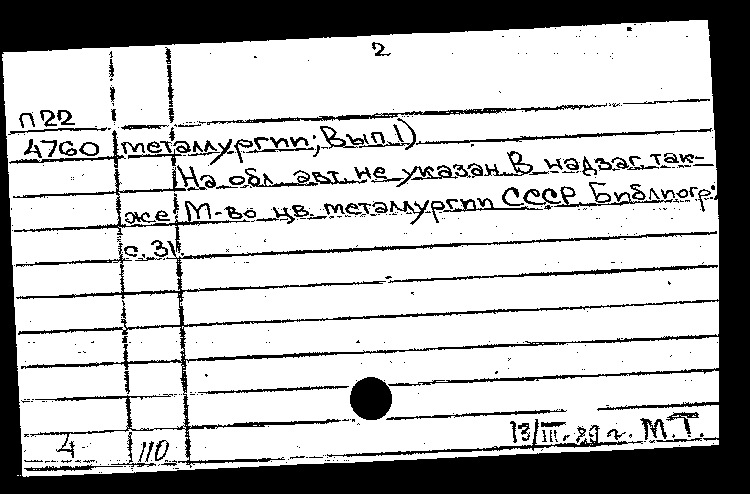 2
П22
4760 металлургии; Вып. 1)
На обл. авт. не указан. В надзаг. так-
же М-во цв. металлургии СССР. Библиогр.:
с. 31
4 110 13/III-89 г. М.Т.